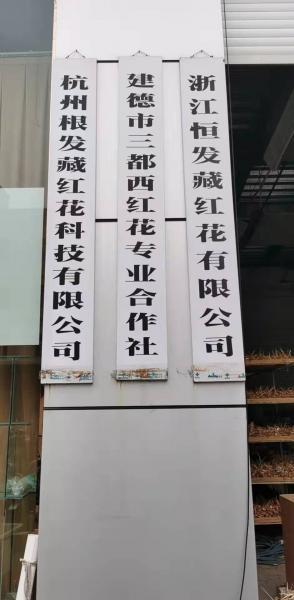 浙江恒发藏红花有限公司
建德市三都西红花专业合作社
杭州根发藏红花科技有限公司